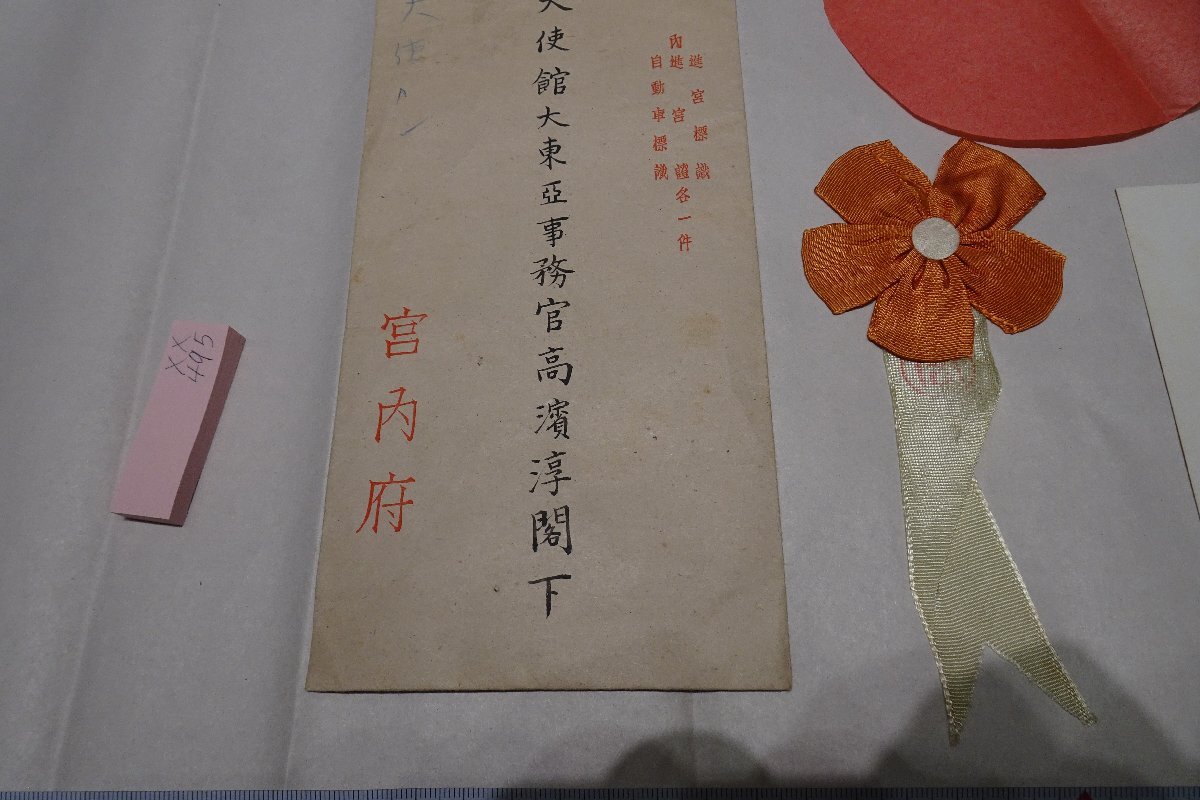 進宮標識
内進宮證各一件
自動車標識
大使館大東亞事務官高濱淳閣下
宮內府
XX
495